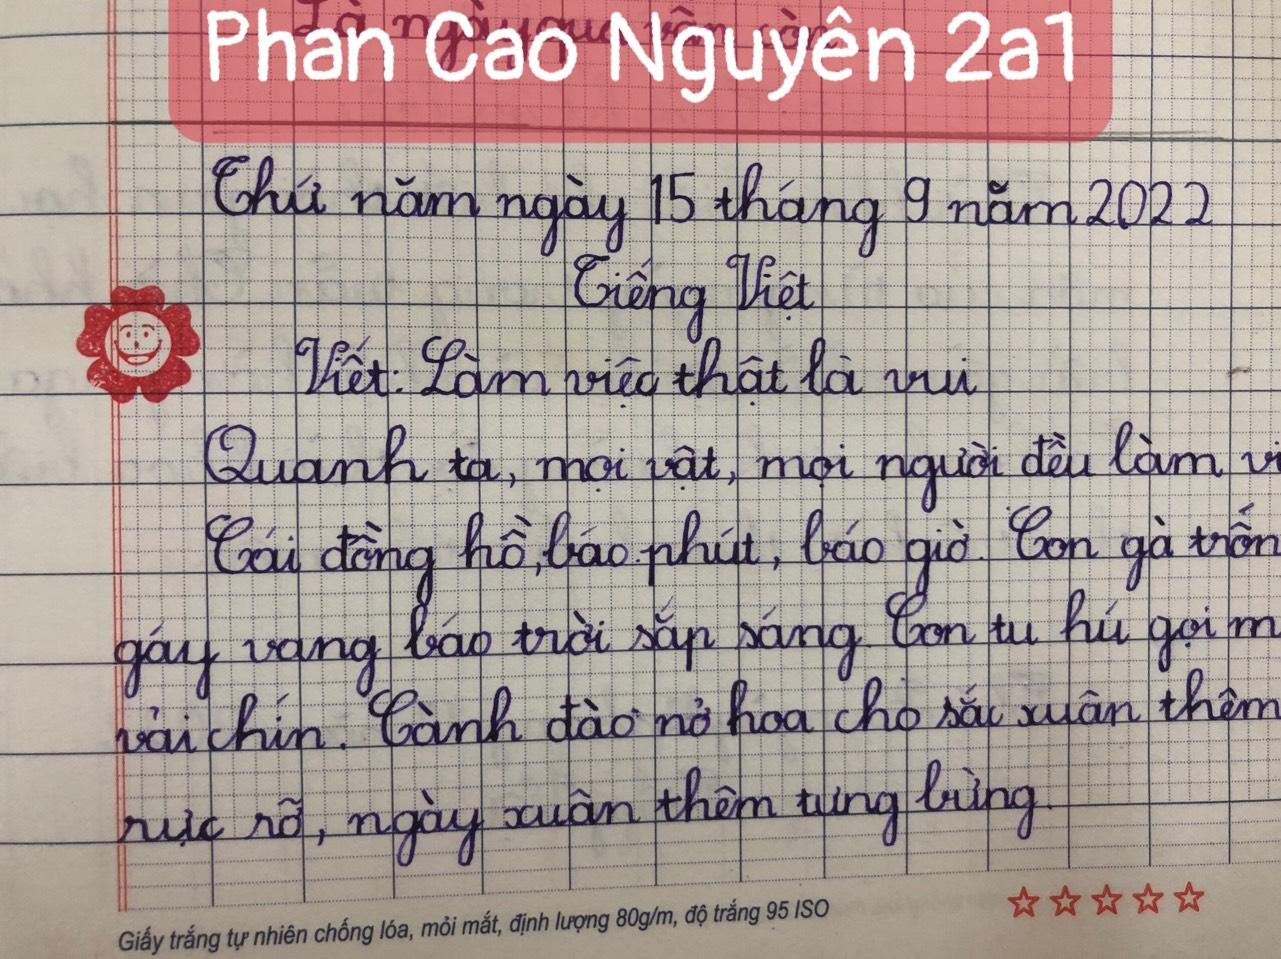 Là ngày qua vẫn còn
Phan Cao Nguyên 2a1
Thứ năm ngày 15 tháng 9 năm 2022
Tiếng Việt
Viết: Làm việc thật là vui
Quanh ta, mọi vật, mọi người đều làm vi
Cái đồng hồ, báo phút, báo giờ. Con gà trốn
gáy vang báo trời sắp sáng. Con tu hú gọi m
vải chín. Cành đào nở hoa cho sắc xuân thêm
rực rỡ, ngày xuân thêm tưng bừng.
Giấy trắng tự nhiên chống lóa, mỏi mắt, định lượng 80g/m, độ trắng 95 ISO